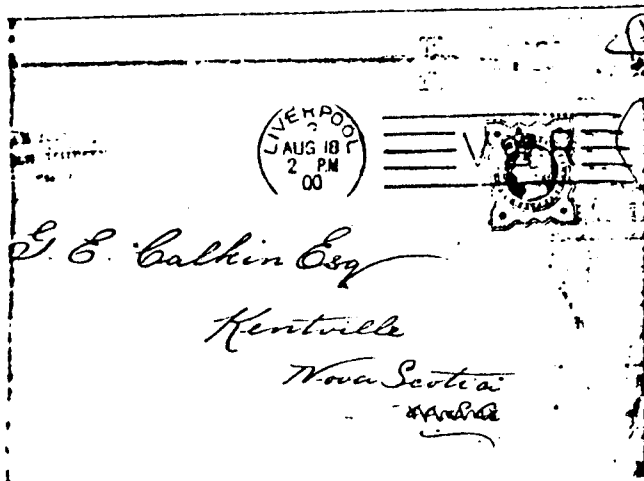 LIVERPOOL
AUG 18
2 PM
00
V
G. E. Calkin Esq
Kentville
Nova Scotia